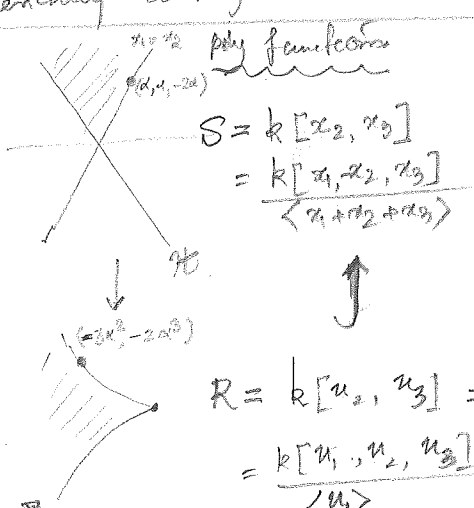 x₁ = x₂
poly functions
(α, α, -2α)
S = k[x₂, x₃]
= k[x₁, x₂, x₃] / ⟨x₁ + x₂ + x₃⟩
ℋ
(-3α², -2α³)
R = k[u₂, u₃] =
= k[u₁, u₂, u₃] / ⟨u₁⟩